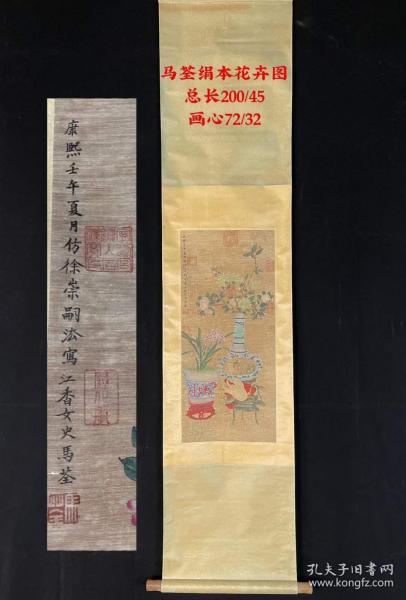 马荃绢本花卉图
总长200/45
画心72/32
康熙壬午夏月仿徐崇嗣法寫江香女史馬荃
孔夫子旧书网
www.kongfz.com